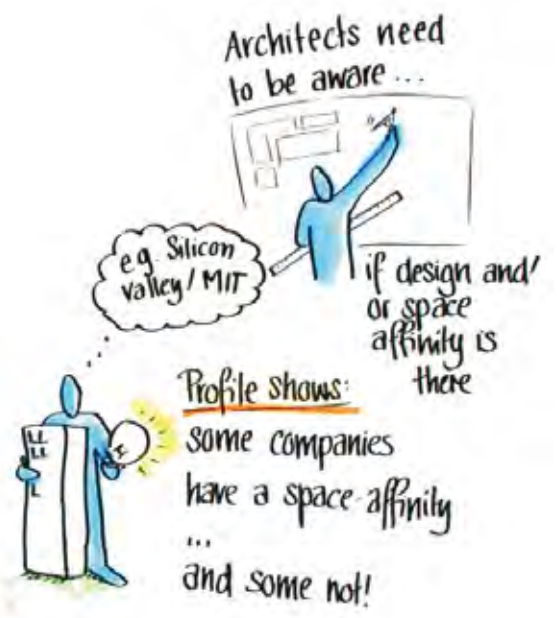 Architects need
to be aware...
e.g. Silicon
Valley / MIT
if design and/
or space
affinity is
there
Profile shows:
some companies
have a space-affinity
...
and some not!